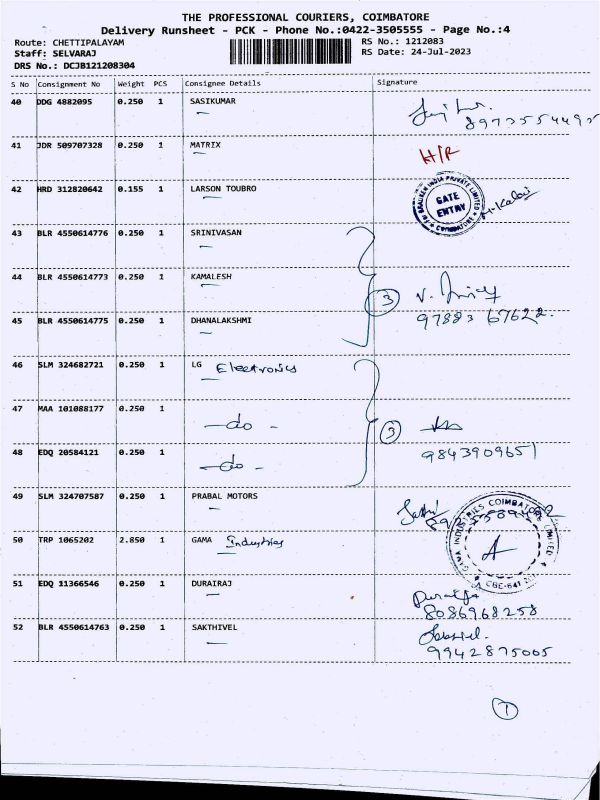 THE PROFESSIONAL COURIERS, COIMBATORE
Delivery Runsheet - PCK - Phone No.:0422-3505555 - Page No.:4
Route: CHETTIPALAYAM RS No.: 1212083
Staff: SELVARAJ RS Date: 24-Jul-2023
DRS No.: DCJB121208304
S No Consignment No Weight PCS Consignee Details Signature
40 DDG 4882095 0.250 1 SASIKUMAR
8973554495
41 JDR 509707328 0.250 1 MATRIX H/R
42 HRD 312820642 0.155 1 LARSON TOUBRO
INDIA PRIVATE LIMITED
GATE ENTRY
COIMBATORE
43 BLR 4550614776 0.250 1 SRINIVASAN
44 BLR 4550614773 0.250 1 KAMALESH 3
45 BLR 4550614775 0.250 1 DHANALAKSHMI 97883 67622
46 SLM 324682721 0.250 1 LG Electronics
47 MAA 101088177 0.250 1 -do- 3
48 EDQ 20584121 0.250 1 -do- 9843909651
49 SLM 324707587 0.250 1 PRABAL MOTORS
50 TRP 1065202 2.850 1 GAMA Industries
GAMA INDUSTRIES COIMBATORE LIMITED
CBE-641
51 EDQ 11366546 0.250 1 DURAIRAJ
8086968258
52 BLR 4550614763 0.250 1 SAKTHIVEL
9942875005
1